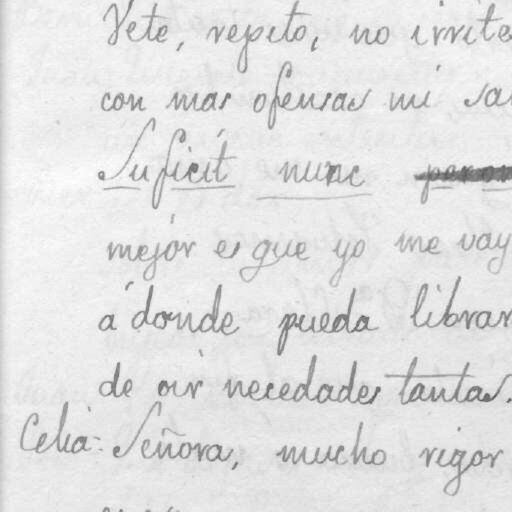 Vete, repito, no irrites
con mas ofensas mi
Suficit nunc
mejór es que yo me vay
á donde pueda librar
de oir necedades tantas.
Celia- Señora, mucho rigor